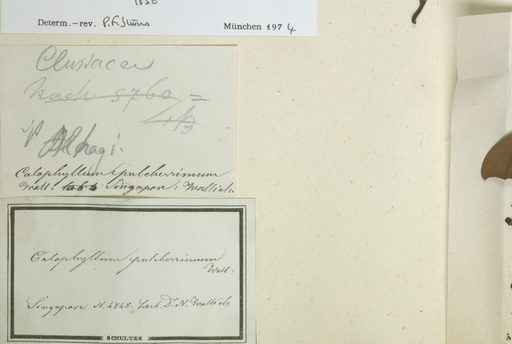 1836
Determ.-rev. P. F. Stevens München 1974
Clusiaceae
nach 5760 =
Calophyllum pulcherrimum
Wall. Singapore: Wallich.
Calophyllum pulcherrimum
Wall.
Singapore N. 4848. herb. D. N. Wallich
SCHULTES